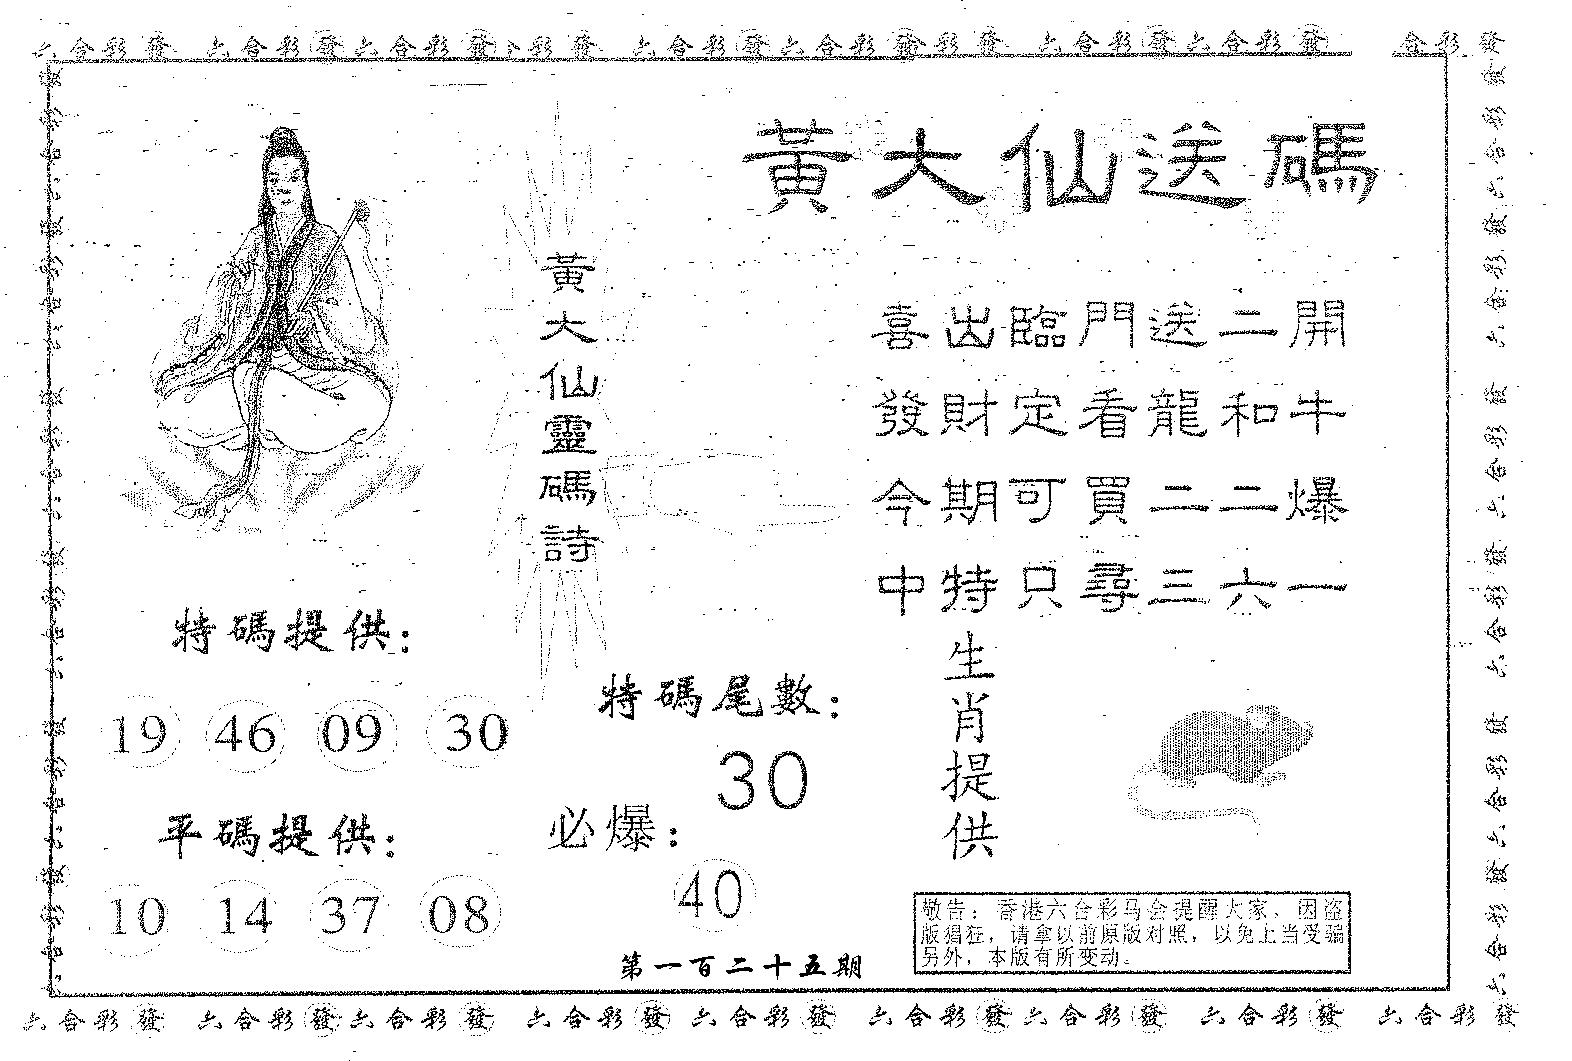 六合彩發 六合彩發六合彩發 彩發 六合彩發六合彩發彩發 六合彩發六合彩發 合彩發
黃大仙送碼
黃大仙靈碼詩
喜出臨門送二開
發財定看龍和牛
今期可買二二爆
中特只尋三六一
特碼提供:
19 46 09 30
平碼提供:
10 14 37 08
特碼尾數:
30
必爆:
40
生肖提供
敬告：香港六合彩马会提醒大家，因盗
版猖狂，请拿以前原版对照，以免上当受骗
另外，本版有所变动。
第一百二十五期
六合彩發 六合彩發六合彩發 六合彩發 六合彩發 六合彩發六合彩發 六合彩發 六合彩發